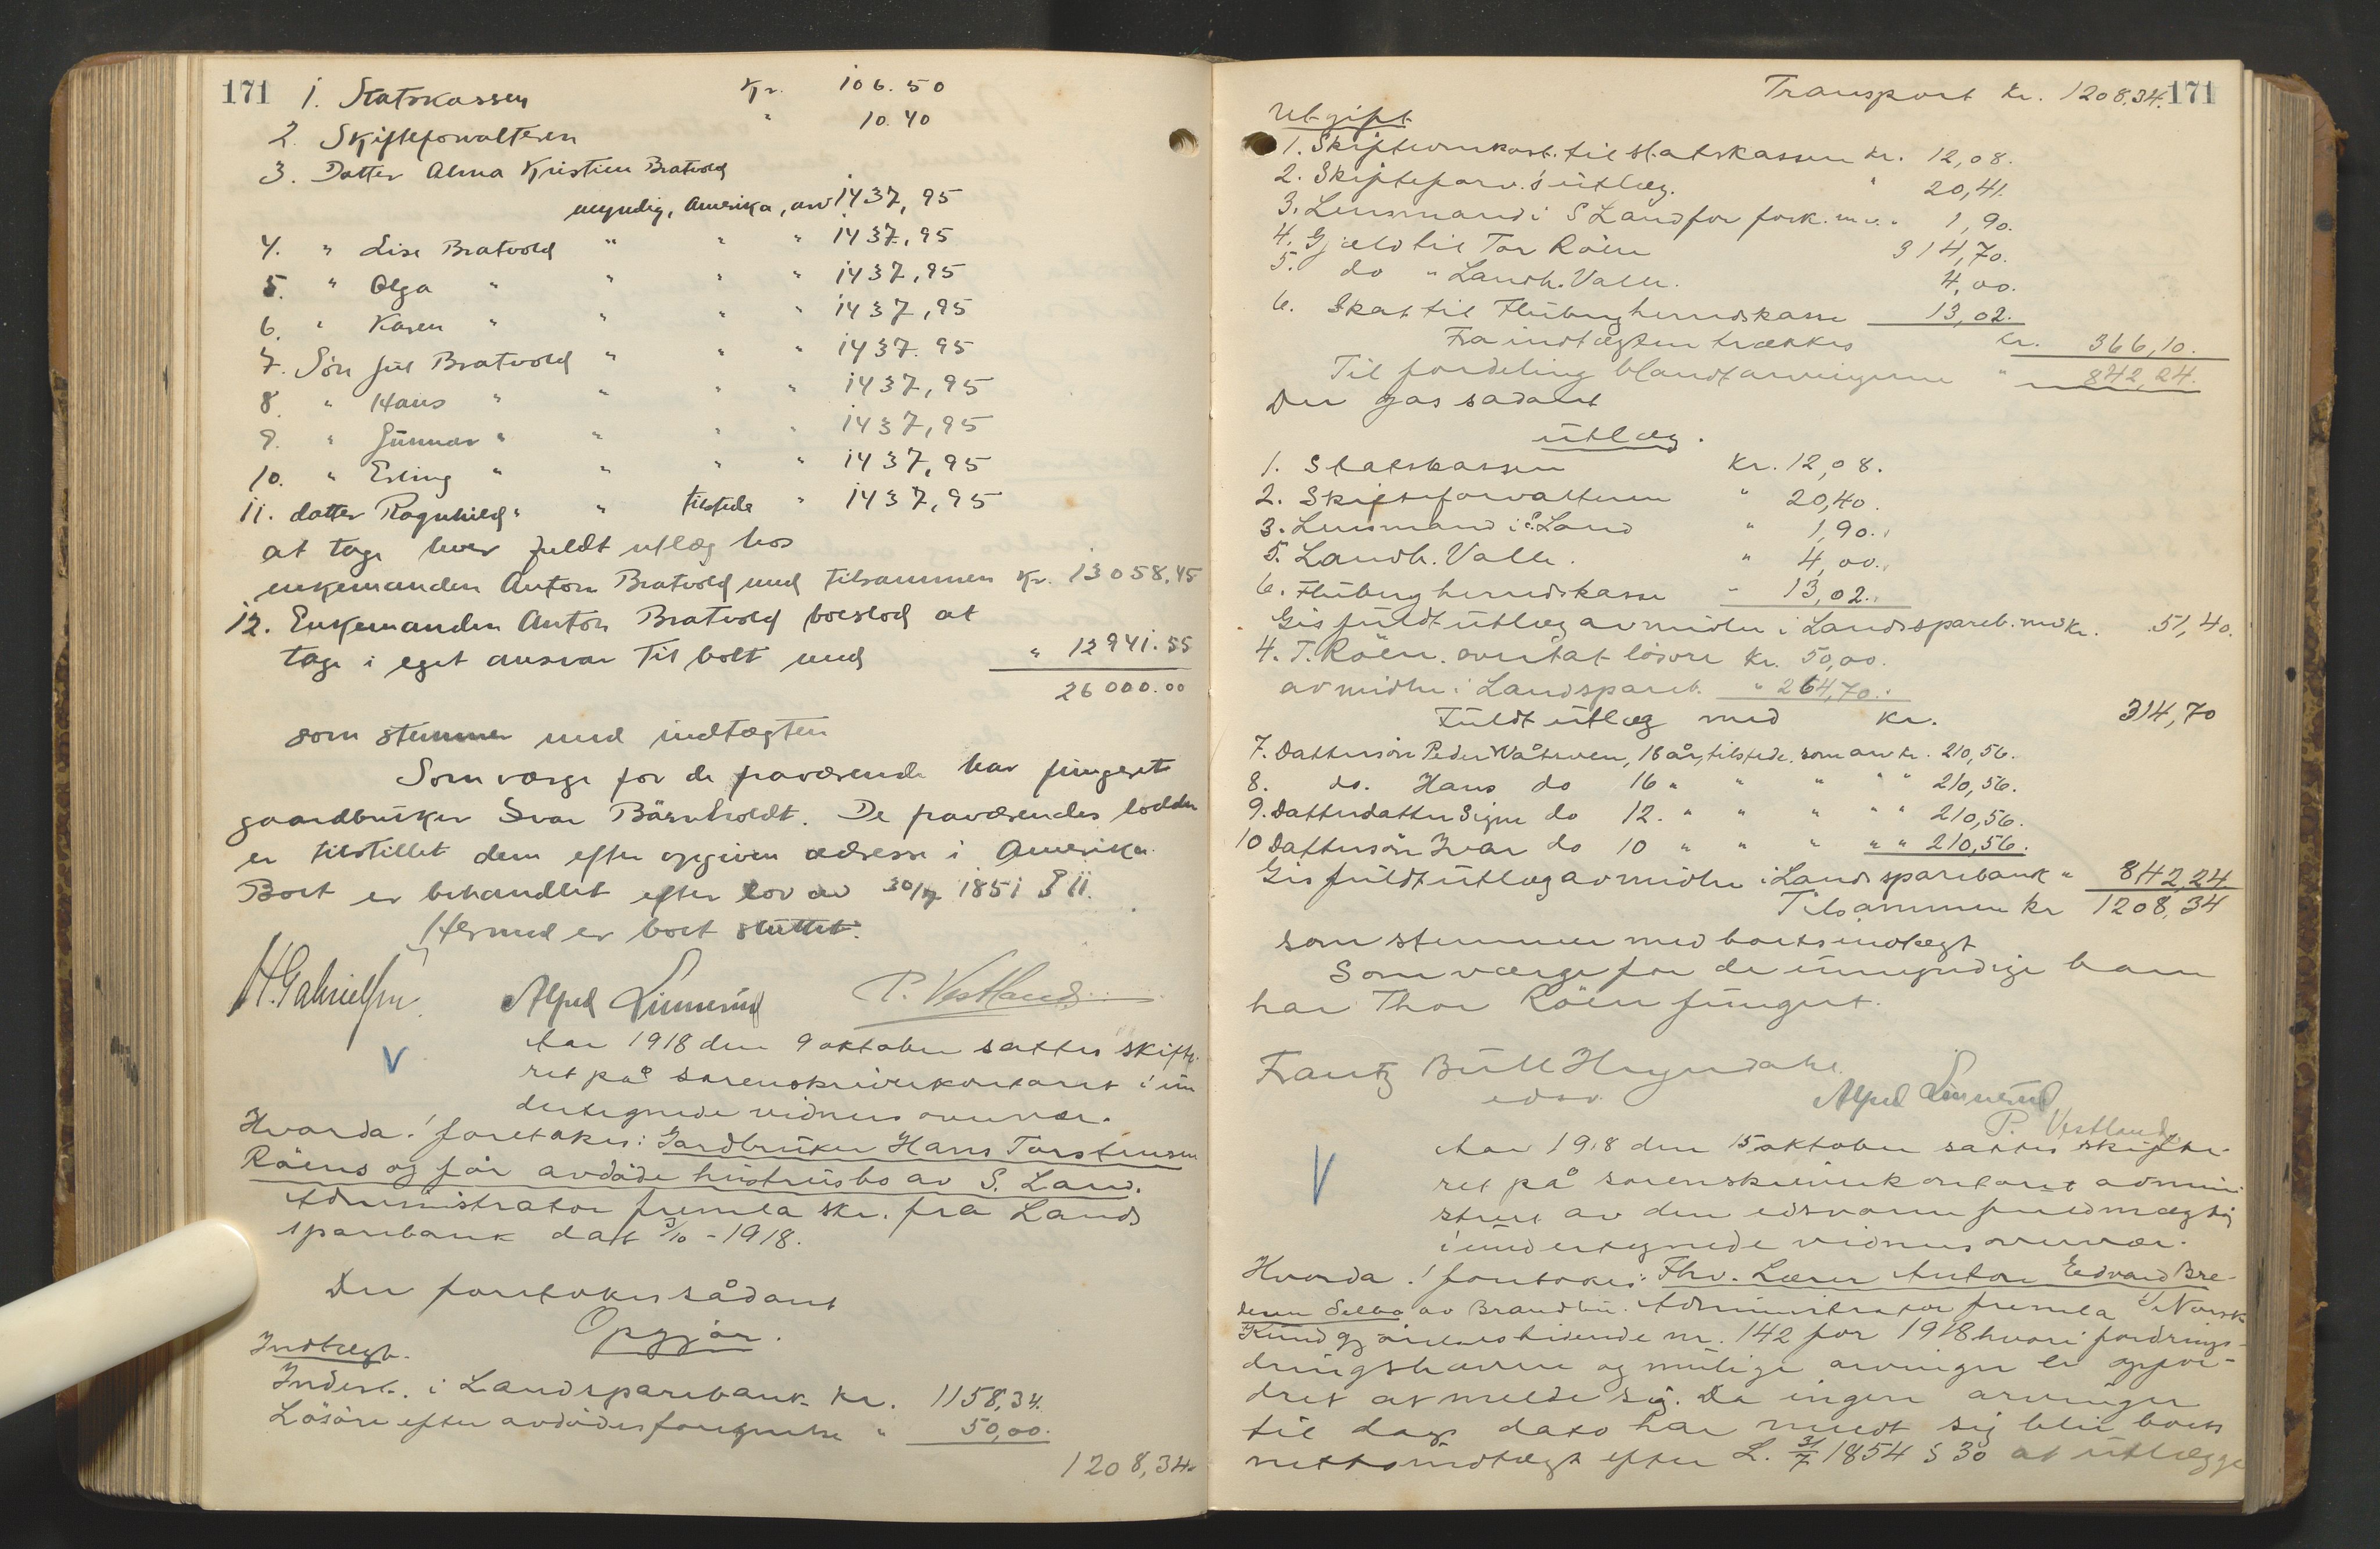 171
1. Statskassen Kr. 106.50
2. Skifteforvalteren " 10.40
3. Datter Alma Kristine Bratvold
myndig, Amerika, arv 1437,95
4. " Lise Bratvold " " " 1437,95
5. " Olga " " " " 1437,95
6. " Karen " " " " 1437,95
7. Søn Jul Bratvold " " " 1437.95
8. " Hans " " " " 1437,95
9. " Gunnar " " " " 1437,95
10. " Erling " " " " 1437,95
11. datter Ragnhild " " tilstede " 1437,95
at tage hver fuldt utlæg hos
enkemanden Anton Bratvold med tilsammen Kr. 13058,45
12. Enkemanden Anton Bratvold boeslod at
tage i eget ansvar til bolt med " 12941.55
26000.00
som stemmer med indtægten
Som værge for de fraværende har fungeret
gaardbruker Ivar Bärnholdt. De fraværendes lodder
er tilstillet dem efter opgiven adresse i Amerika.
Boet er behandlet efter lov av 30/7 1851 § 11.
Hermed er boet sluttet.
H. Gabrielsen Alfred Linnerud P. Vestland
V
Aar 1918 den 9 oktober sattes skifte-
ret på sorenskriverkontoret i un
dertegnede vidners overvær.
Hvorda! foretokes: Gardbruker Hans Torstensen
Röens og før avdöde hustrus bo av S. Land.
Administrator fremla skr. fra Lands
sparebank dat 3/10 - 1918.
Der foretokes sådant
Opgjör.
Indtægt.
Indest. i Landsparebank kr. 1158,34.
Lösöre efter avdödes foregivelse " 50,00.
1208,34.
Transport kr. 1208.34. 171
Utgift
1. Skifteomkost. til statskassen kr. 12,08.
2. Skifteforv.'s utlæg. " 20,41.
3. Lensmand i S Land for fork. m.v. " 1,90.
4. Gjæld til Tor Röen 314,70.
5. do " Landh. Valle. 4,00.
6. Skat til Fluberg herredskasse 13,02.
Fra indtægten trækkes kr. 366,10.
Til fordeling blandt arvingerne " 842,24.
Der gas sadant
utlæg.
1. Statskassen kr. 12,08.
2. Skifteforvalteren " 20,40.
3. Lensmand i S. Land " 1,90.
5. Landh. Valle. " 4,00.
6. Fluberg herredskasse - 13,02.
Gis fuldt utlæg av midler i Landsspareb. med kr. 51,40.
4. T. Röen. overtat lösöre kr. 50,00.
av midler i Landspareb. " 264,70.
Fuldt utlæg med kr. 314,70
7. Dattersön Peder Våtsveen, 18 år, tilstede som arv kr. 210,56.
8. do. Hans do 16 " " " " " 210,56.
9. Datterdatter Signe do 12. " " " " " 210,56.
10 Dattersön Ivar do 10 " " " " " 210,56.
Gis fuldt utlæg av midler i Lands sparebank " 842,24
Tilsammen kr 1208,34
som stemmer med boets indtægt
Som værge for de umyndige barn
har Thor Röen fungert.
Frantz Bull Heyerdahl
edsv. Alfred Linnerud
P. Vestland
V
Aar 1918 den 15 oktober sattes skifte-
ret på sorenskriverkontoret admini
strert av den edsvorne fuldmægtig
i undertegnede vidners overvær.
Hvorda! foretokes: Fhv. Lærer Anton Edvard Bre-
desen Selbo av Brandbu. Administrator fremla "Norsk
Kundgjörelsestidende nr. 142 for 1918 hvori fordrings-
dringshavere og mulige arvinger er opfor-
dret at melde sig. Da ingen arvinger
til dags dato har meldt sig blir boets
nettoindtægt efter L. 31/7 1854 § 30 at utlægge